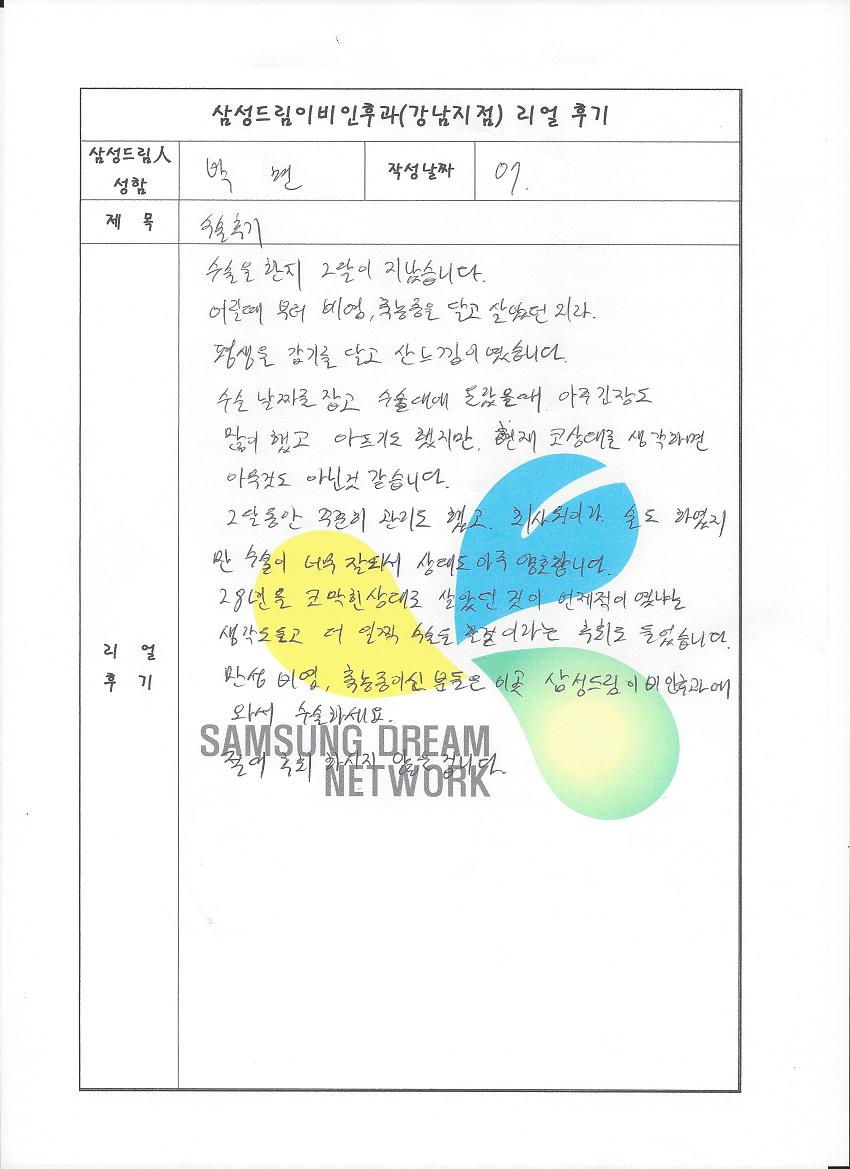 삼성드림이비인후과(강남지점) 리얼 후기
삼성드림人
성함
박 면
작성날짜
07.
제 목
수술후기
수술을 한지 2달이 지났습니다.
어릴때 부터 비염,축농증을 달고 살았던 지라.
평생을 감기를 달고 산느낌이였습니다.
수술 날짜를 잡고 수술대에 올랐을때 아주긴장도
많이 했고 아프기도 했지만, 현재 코상태를 생각하면
아무것도 아닌것 같습니다.
2달동안 꾸준히 관리도 했고. 회사원이라 술도 하였지
만 수술이 너무 잘되서 상태도 아주 양호합니다.
28년을 코막힌상태로 살았던 것이 언제적이였냐는
생각도들고 더 일찍 수술을 할걸이라는 후회도 들었습니다.
리 얼
후 기
만성 비염, 축농증이신 분들은 이곳 삼성드림이비인후과에
와서 수술하세요.
절대 후회 하시지 않을겁니다.
SAMSUNG DREAM
NETWORK